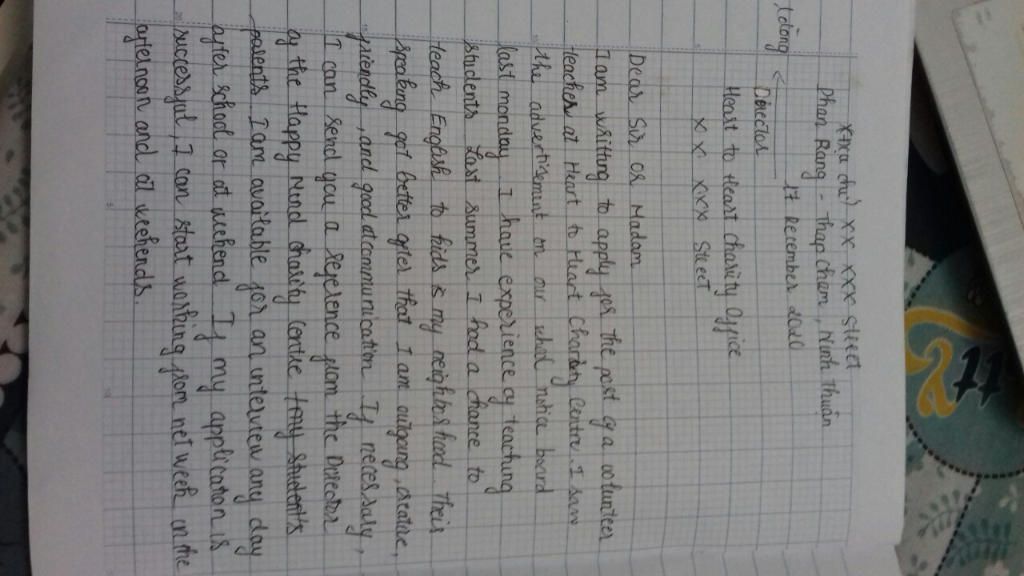 xx xxx Street
Phan Rang - Tháp Chàm, Ninh Thuận
17 December 2020
Director
Heart to Heart charity Office
x x xxx Street
Dear Sir or Madam
I am writting to apply for the post of a volunteer
teacher at Heart to Heart Charity Centre. I saw
the advertisment on our whol notice board
last monday. I have experience of teaching
students. Last summer, I had a chance to
teach English to kids is my neighborhood. Their
speaking got better after that. I am outgoing, creative,
friendly, and good at communication. If necessary,
I can send you a reference from the Director
of the Happy Mind charity centre
I am available for an interview any day
after school or at wekend. If my application is
successful, I can start working from net week in the
afternoon and at wekends.
11
2